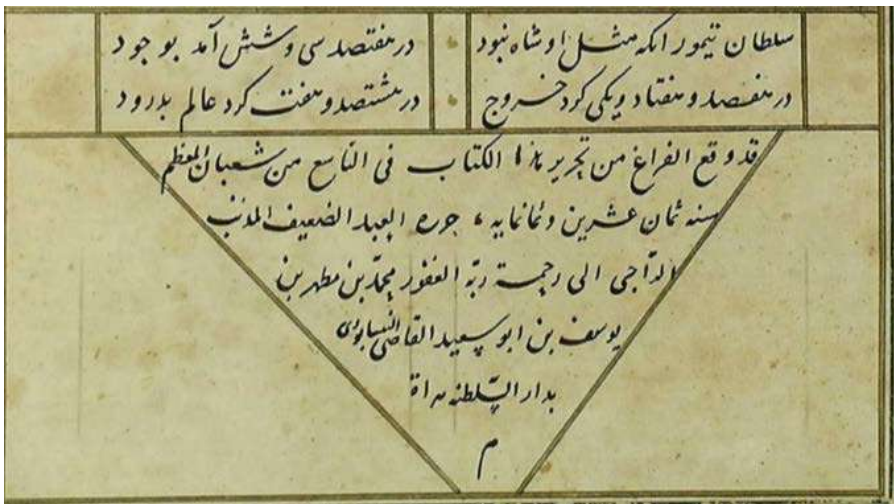 سلطان تیمور انکه مثل او شاه نبود
در هفتصد سی و شش آمد بوجود
در هفتصد و هفتاد و یکی کرد خروج
در هشتصد و هفت کرد عالم بدرود
قد وقع الفراغ من تحریر هذا الکتاب فی التاسع من شعبان المعظم
سنه ثمان عشرین و ثمانمایه حرره العبد الضعیف المذنب
الراجی الی رحمة ربّه الغفور محمّد بن مطهر بن
یوسف بن ابو سعید القاضی النیسابوری
بدار السّلطنه هراة
م